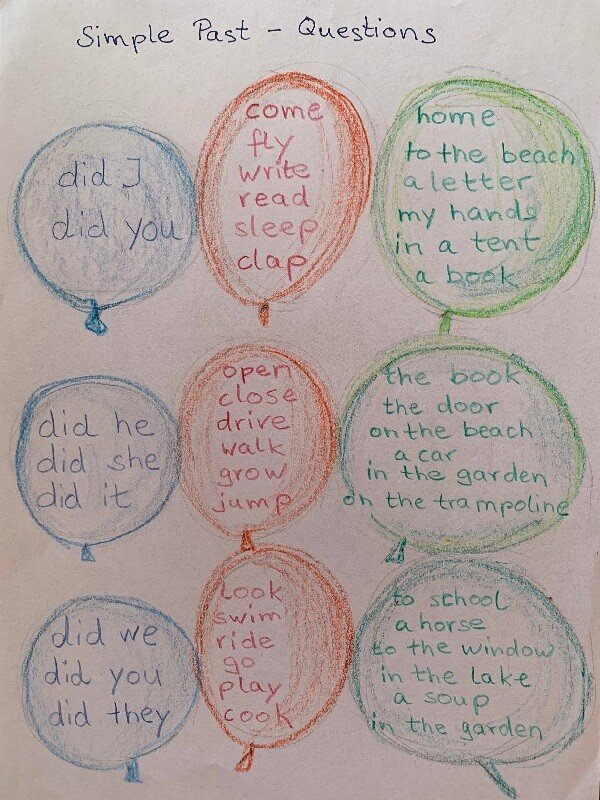 Simple Past - Questions
did I
did you
come
fly
write
read
sleep
clap
home
to the beach
a letter
my hands
in a tent
a book
did he
did she
did it
open
close
drive
walk
grow
jump
the book
the door
on the beach
a car
in the garden
on the trampoline
did we
did you
did they
look
swim
ride
go
play
cook
to school
a horse
to the window
in the lake
a soup
in the garden